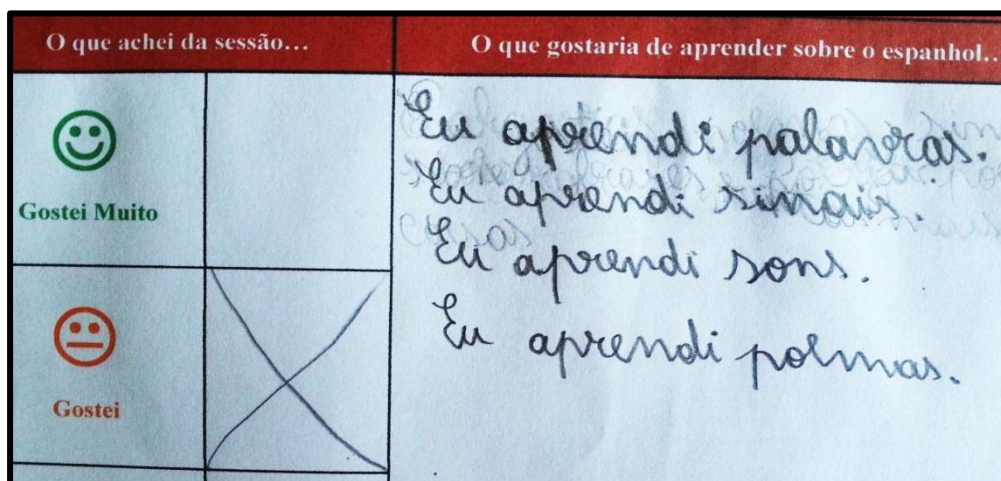 O que achei da sessão...
O que gostaria de aprender sobre o espanhol..
Gostei Muito
Gostei
Eu aprendi palavras.
Eu aprendi sinais.
Eu aprendi sons.
Eu aprendi poemas.